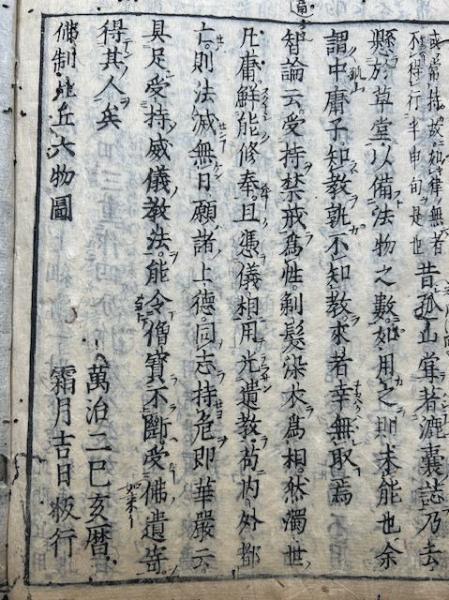 或常持故如律無者
不得行半由旬是也
昔孤山甞著漉囊誌乃云
懸於草堂以備法物之數如用之則未能也余
謂中庸子知教孰不知教求者幸無取焉
智論云受持禁戒爲性剃髮染衣爲相然濁世
凡庸鮮能修奉且憑儀相用光遺教苟内外都
亡則法滅無日願諸上德同志持危即華嚴云
具足受持威儀教法能令僧寶不斷受佛遺寄
得其人矣
佛制比丘六物圖
萬治二巳亥曆
霜月吉日板行